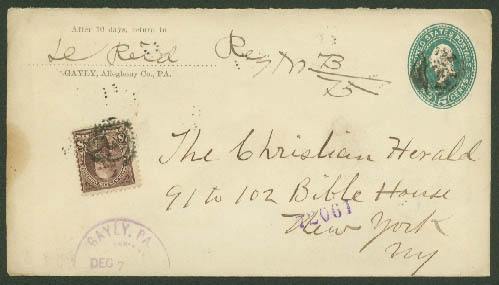 After 10 days, return to
Le Reid
GAYLY, Allegheny Co., PA.
Reg No B
D
UNITED STATES POSTAGE
CENTS
The Christian Herald
91 to 102 Bible House
New York
NY
72061
GAYLY, PA.
DEC 7